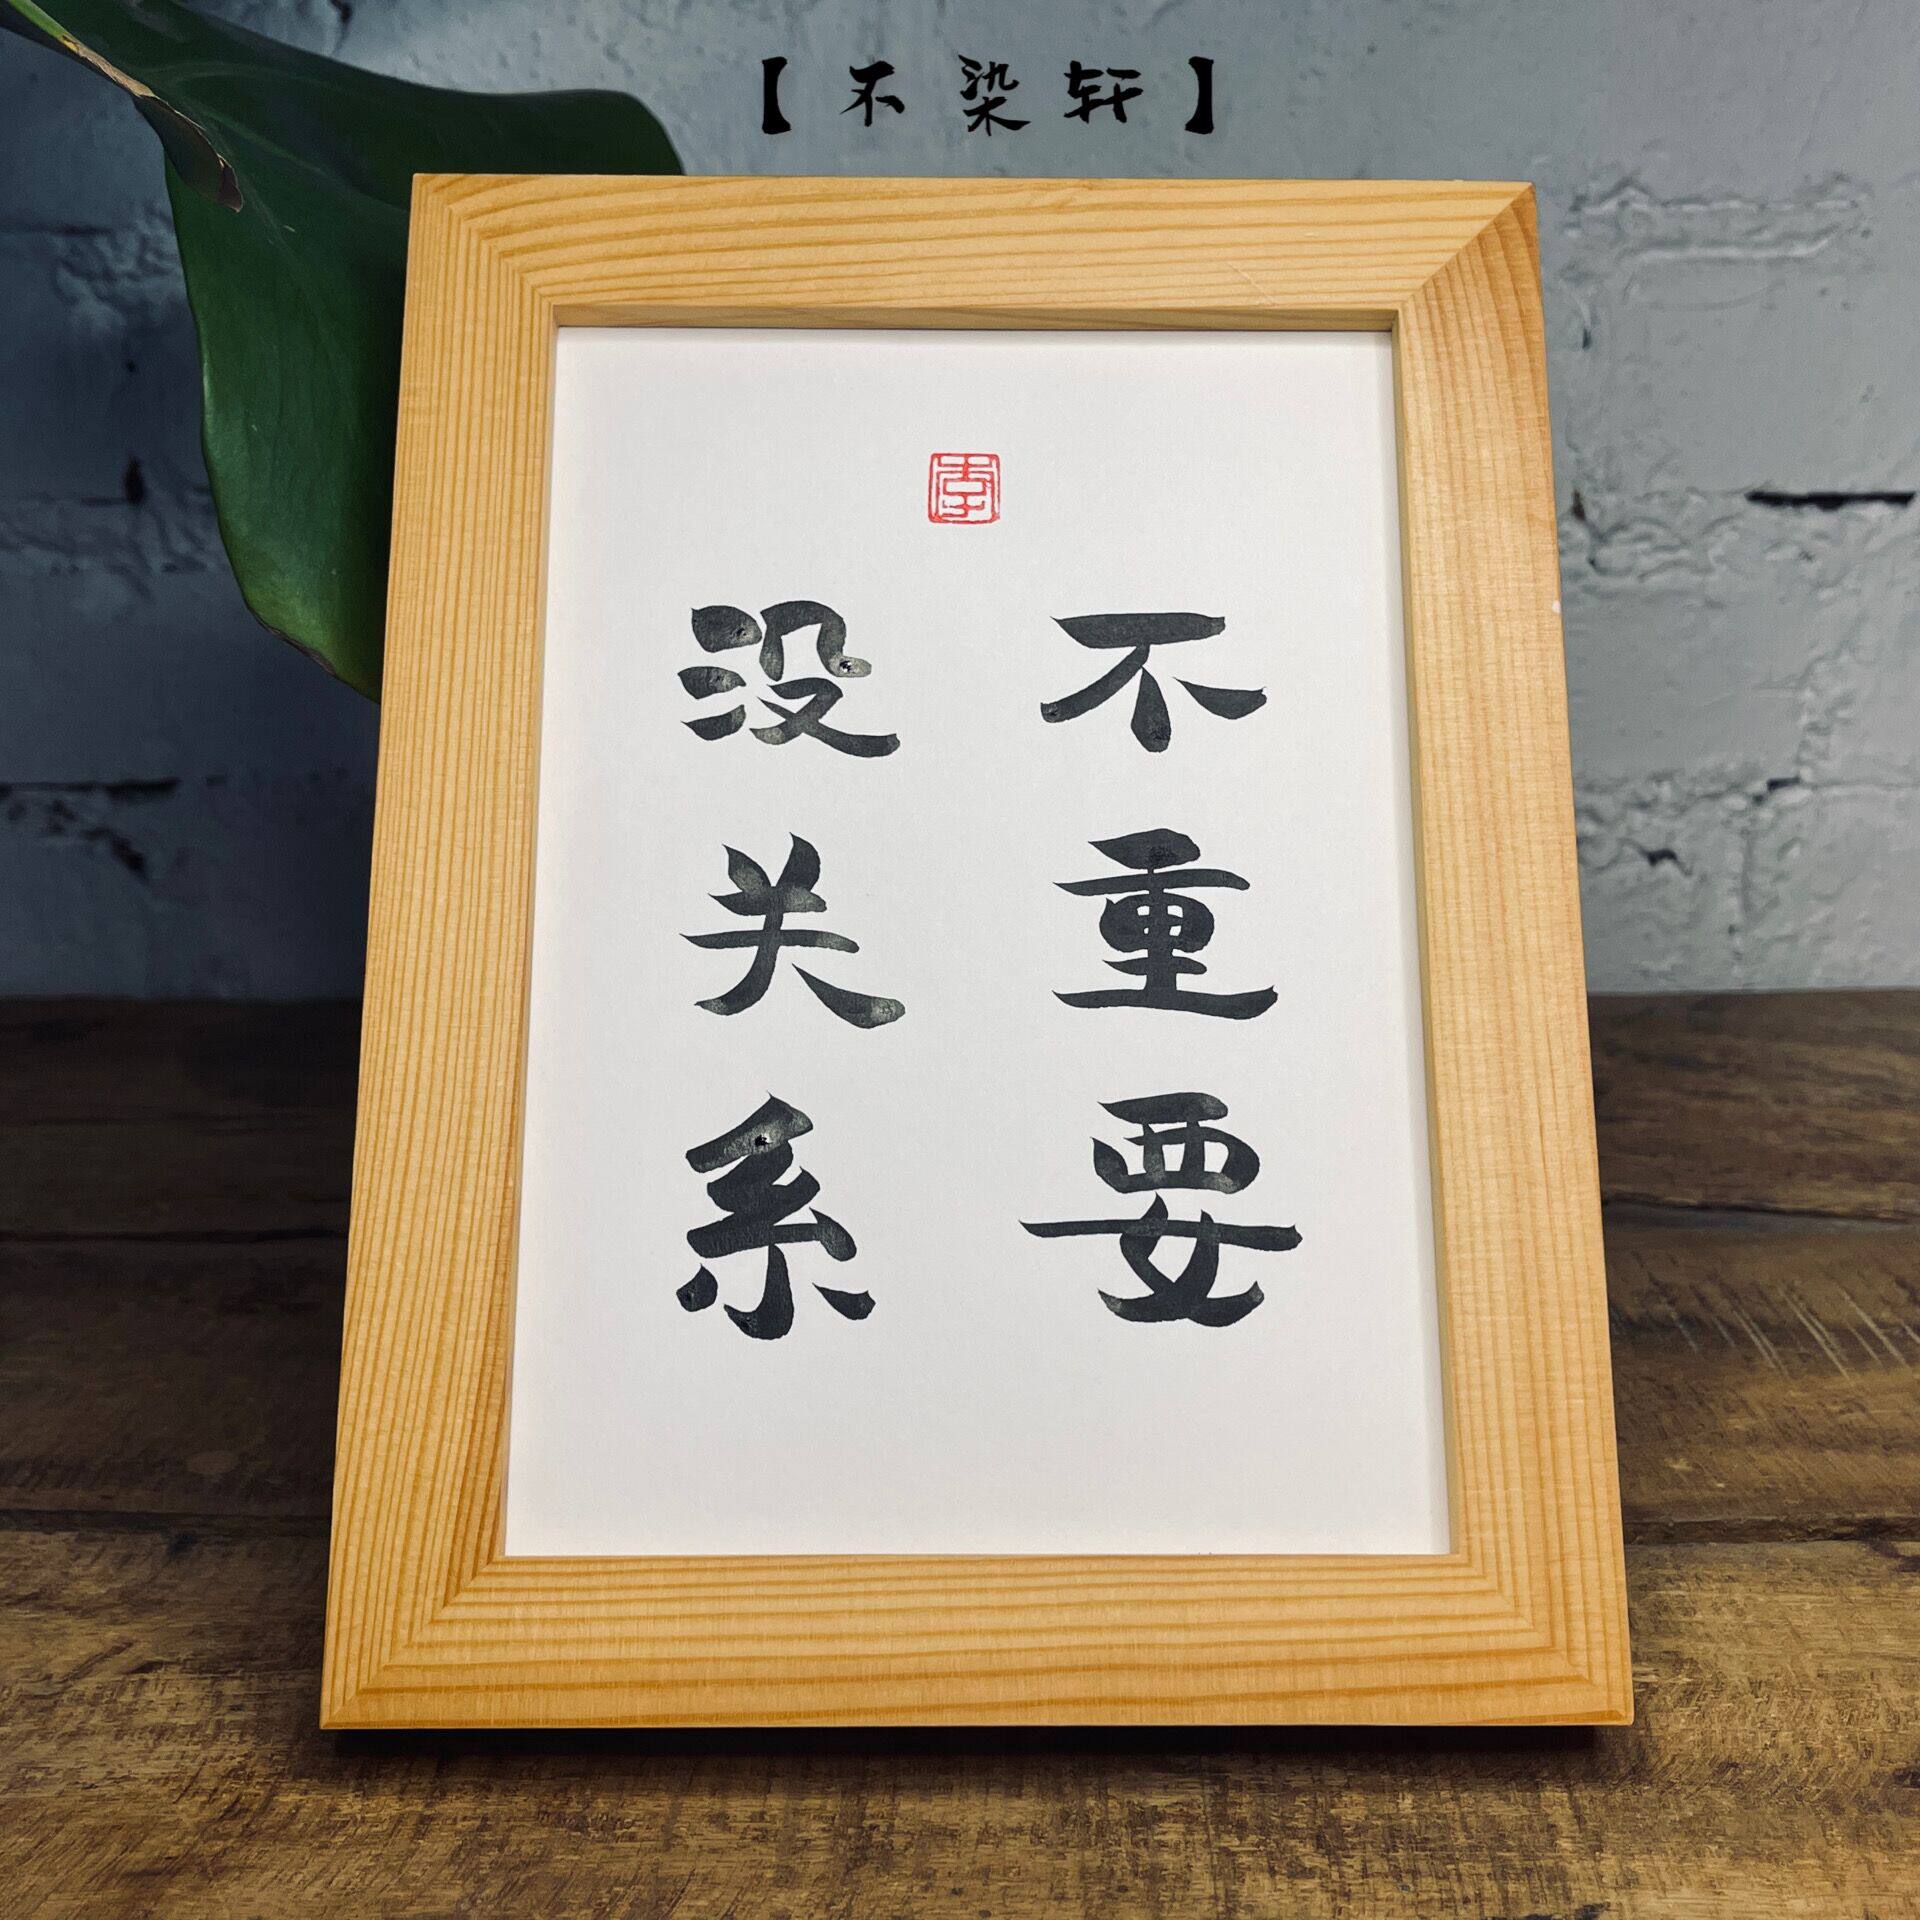 【不染轩】
李
不重要
没关系